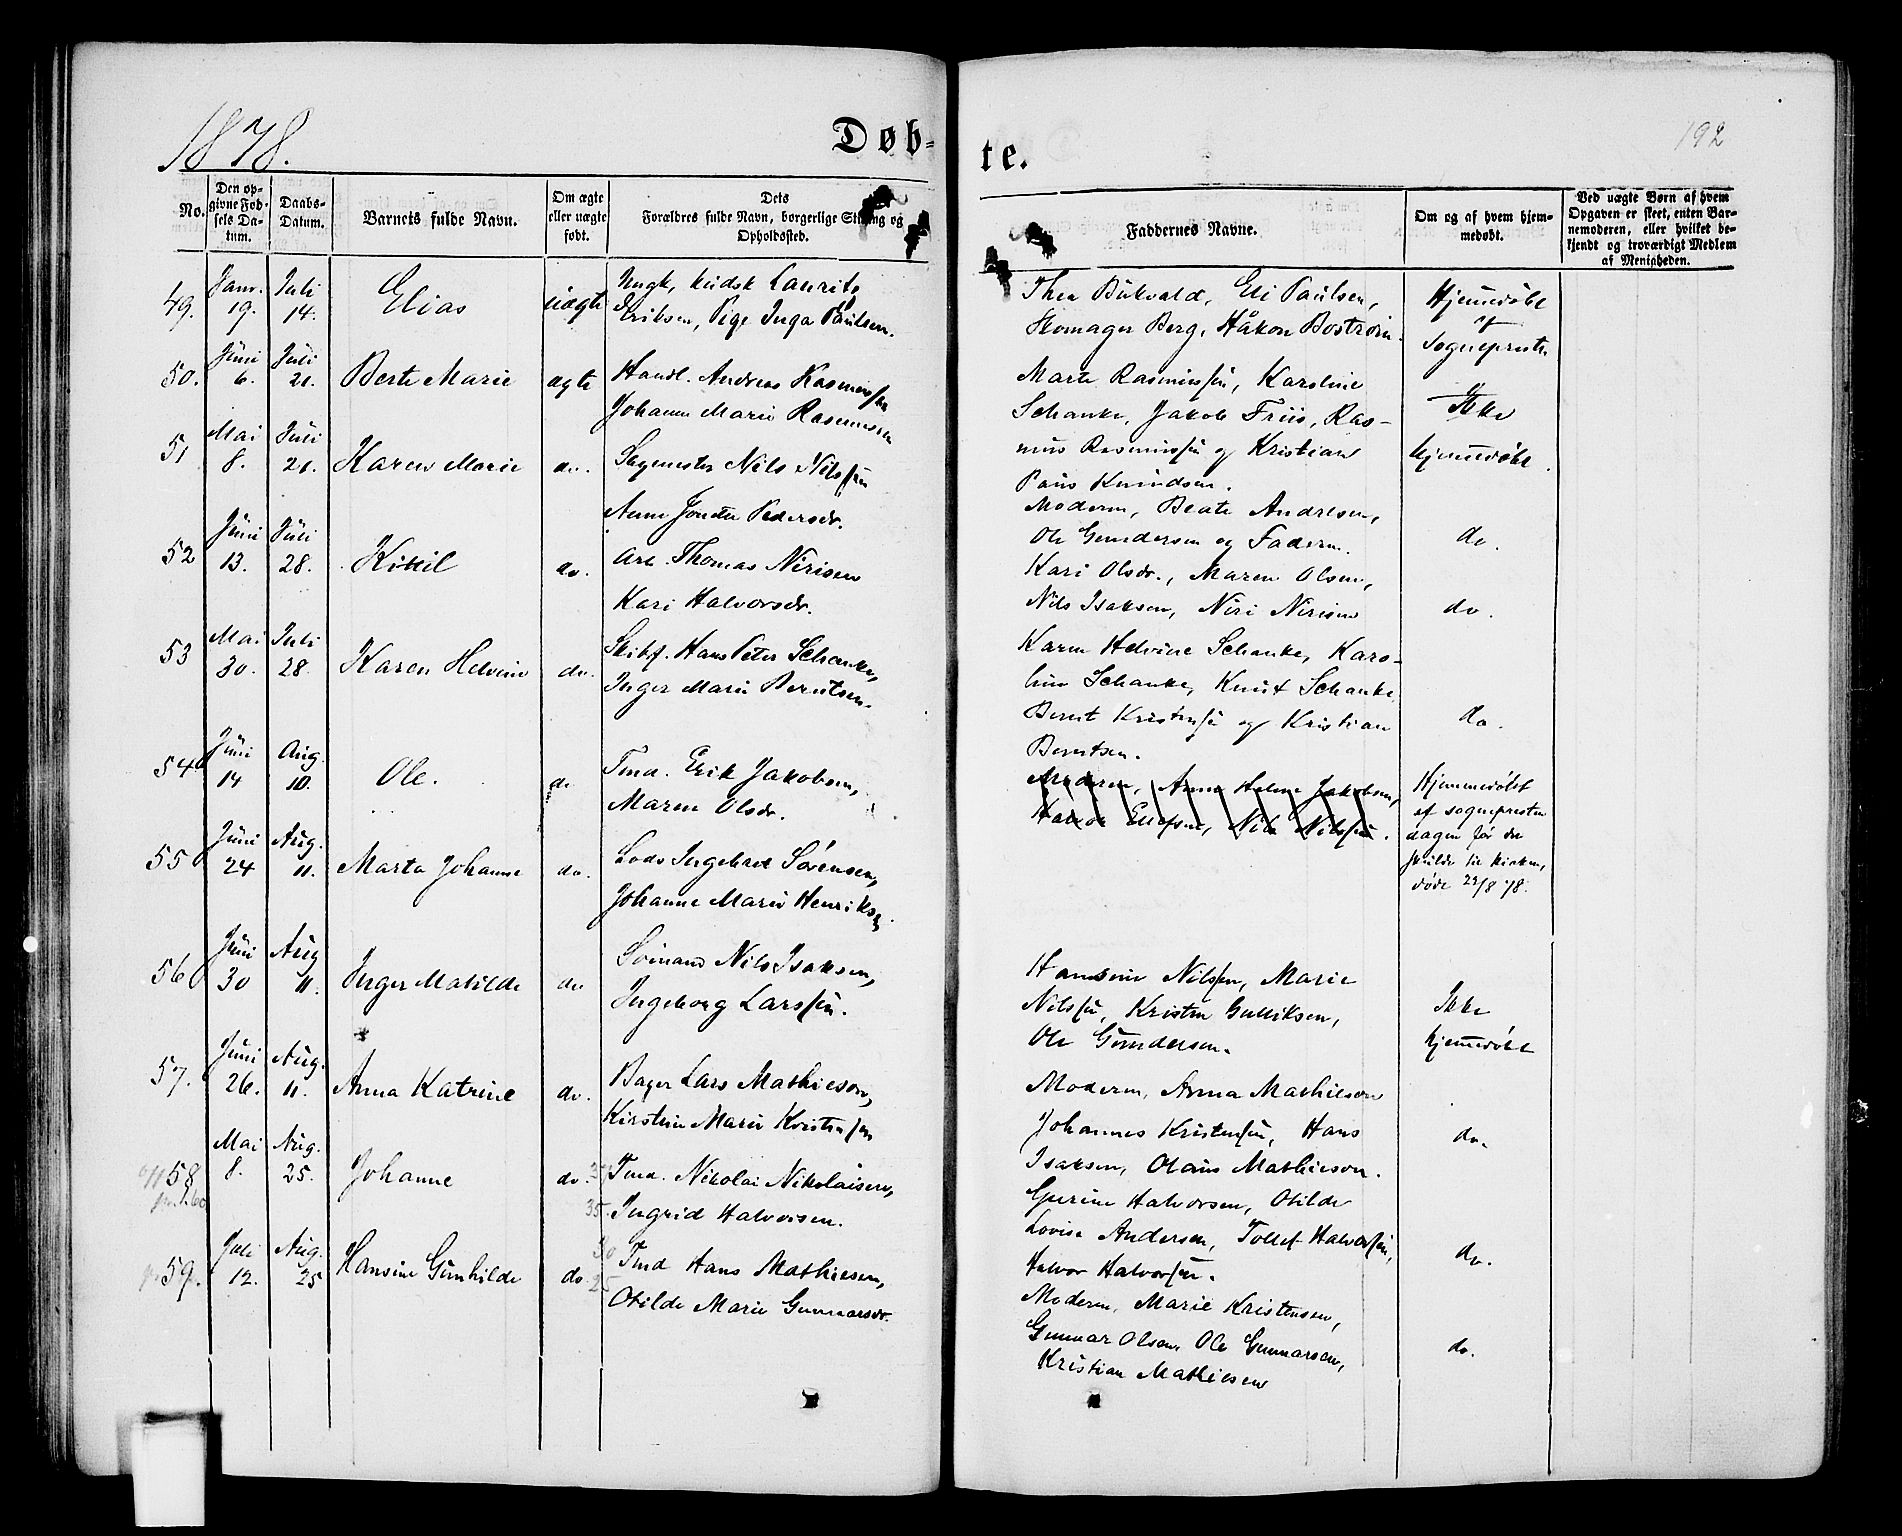 1878.
Døb-
te.
192
No.
Den op-
givne Fød-
sels Da-
tum.
Daabs-
Datum.
Barnets fulde Navn.
Om ægte
eller uægte
født.
Dets
Forældres fulde Navn, borgerlige Stilling og
Opholdssted.
Faddernes Navne.
Om og af hvem hjem-
medøbt.
Ved uægte Børn af hvem
Opgaven er skeet, enten Bar-
nemoderen, eller hvilket be-
kjendt og troværdigt Medlem
af Menigheden.
49.
Janr.
19.
Juli
14.
Elias
uægte
Ungk, kudsk Laurits
Eriksen, Pige Inga Paulsen.
Thea Bukvald, Eli Paulsen,
Skomager Berg, Håkon Bostrøm.
Hjemmedøbt
af
Sognepresten
50.
Juni
6.
Juli
21.
Berte Marie
ægte
Handl. Andreas Rasmussen
Johanne Marie Rasmussen
Marte Rasmussen, Karoline
Schanke, Jakob Friis, Ras-
mus Rasmussen og Kristian
Paus Knudsen.
Ikke
hjemmedøbt.
51
Mai
8.
Juli
21.
Karen Marie
do.
Sagmester Nils Nilssen
Anne Jonette Pedersdr.
Moderen, Beate Andresen,
Ole Gundersen og Faderen.
do.
52
Juni
13.
Juli
28.
Kittil
do.
Arb. Thomas Nirisen
Kari Halvorsdr.
Kari Olsdr., Maren Olsen,
Nils Isaksen, Niri Nirisen
do.
53
Mai
30.
Juli
28.
Karen Helvine
do.
Skibsf. Hans Peter Schanke,
Inger Marie Berntsen.
Karen Helvine Schanke, Karo-
line Schanke, Knut Schanke
Bernt Kristensen og Kristian
Berntsen.
do.
54
Juni
14
Aug.
10.
Ole.
do
Tmd. Erik Jakobsen,
Maren Olsdr.
Moderen, Anne Helene Jakobsen,
Ellefsen, Nils Nilssen.
Hjemmedøbt
af sognepresten
dagen før de
skulde til kirken,
døde 29/8 78.
55
Juni
24
Aug.
11.
Marta Johanne
do.
Lods Ingebret Sørensen,
Johanne Marie Henriksen.
56
Juni
30
Aug
11.
Inger Matilde
do
Sømand Nils Isaksen,
Ingeborg Larssen.
Hansine Nilssen, Marie
Nilssen, Kristen Gulliksen,
Ole Gundersen.
Ikke
hjemmedøbt
57.
Juni
26.
Aug.
11.
Anna Katrine
do.
Bager Lars Mathiesen,
Kirstine Marie Kristensen
Moderen, Anna Mathiesen
Johannes Kristensen, Hans
Isaksen, Olaus Mathiesen.
do.
58
Mai
8.
Aug.
25.
Johanne
do.
35.
Tmd. Nikolai Nikolaisen,
Ingrid Halvorsen.
Gurine Halvorsen, Otilde
Lovise Andersen, Tollef Halvorsen,
Halvor Halvorsen.
do.
59.
Juli
12.
Aug.
25
Hansine Gunhilde
do.
30
25
Tmd Hans Mathiesen,
Otilde Marie Gunnarsdr.
Moderen, Marie Kristensen,
Gunnar Olsen, Ole Gunnarsen,
Kristian Mathiesen
do.